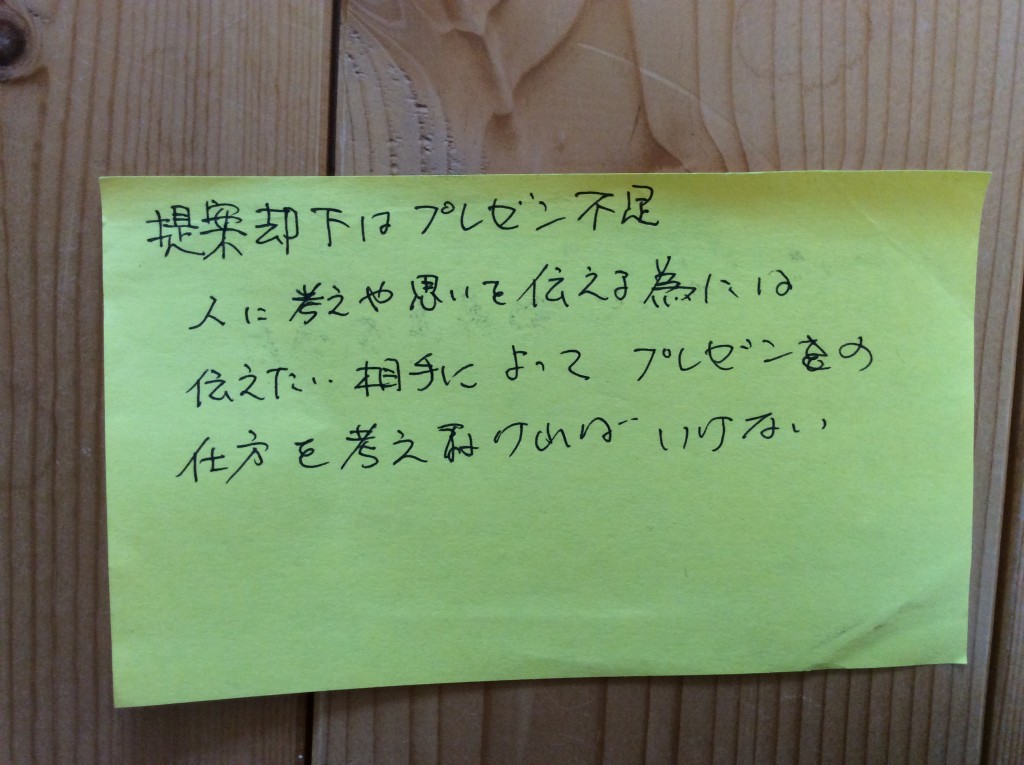 提案却下はプレゼン不足
人に考えや思いを伝える為には
伝えたい相手によって プレゼンの
仕方を考えねければ いけない